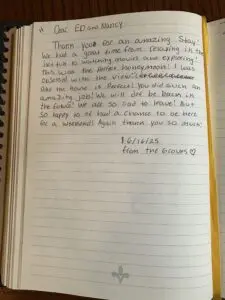 Dear ED and Nancy
Thank you for an amazing Stay!
We had a great time from relaxing in the
hot tub to watching movies and exploring!
This was the perfect honeymoon! I was
obsessed with the view!
And the house is Perfect! You did such an
amazing job! We will def be back in
the future! We are so sad to leave! But
so happy to of had a chance to be here
for a weekend! Again thank you so much!
6/16/25
from the Groves ♡